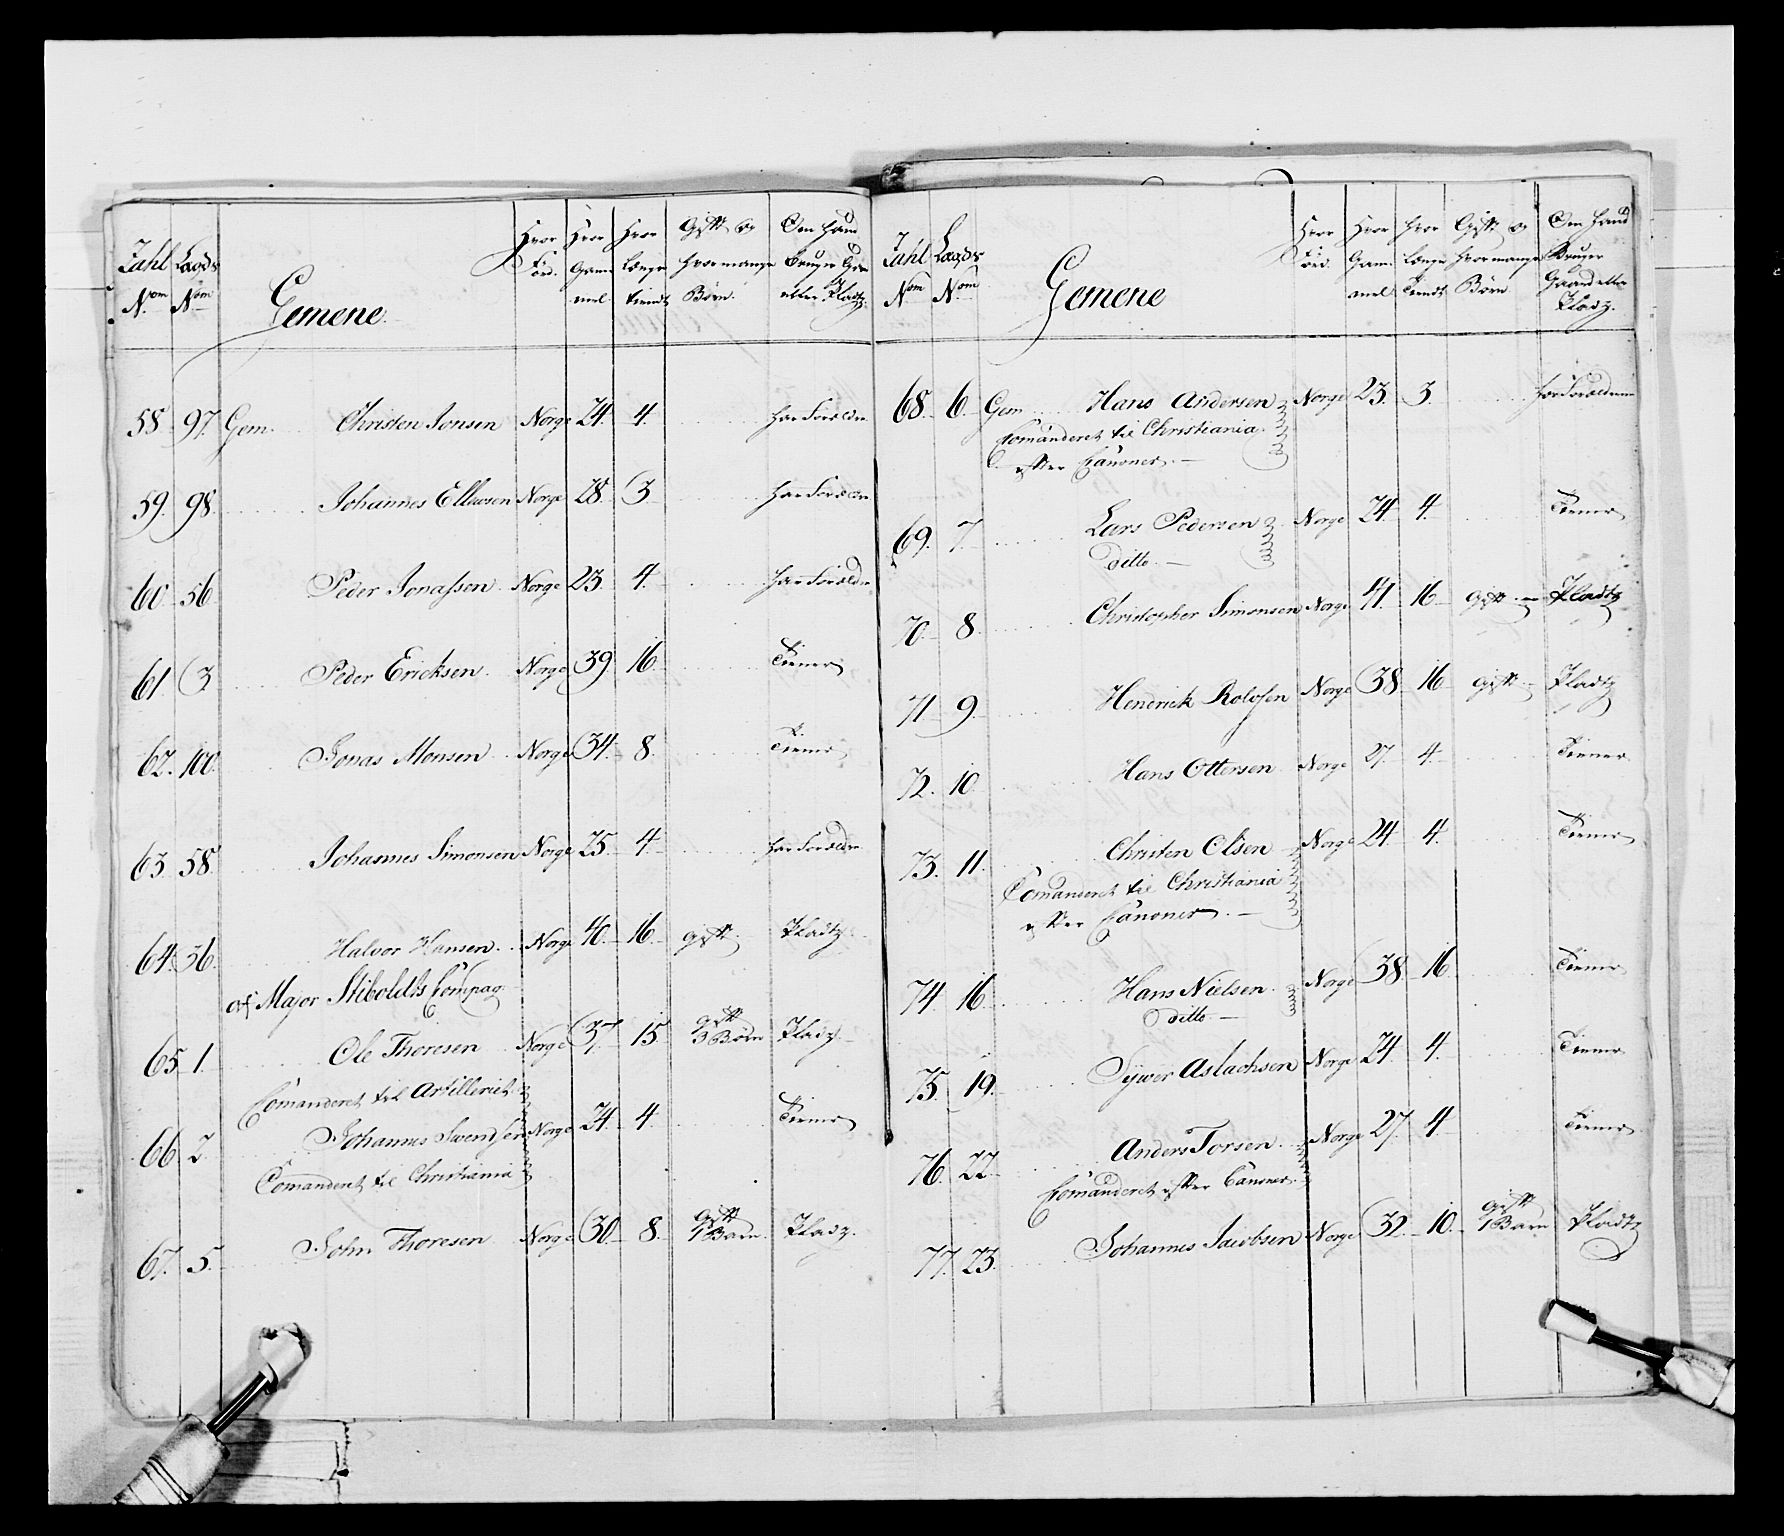 Tahl Laods Hvor Hvor Hvor Gift og Om hand
Nom Nom Gemene Föd. Gam længe hvormange bruger Gaar
mel tient Börn. eller Pladtz.
58 97. Gem. Christen Jonsen Norge 24. 4. har Forældre
59. 98. Johannes Ellewsen Norge 28. 3 har Foræld
60 56 Peder Jonassen Norge 23. 4. har Forældr
61 3 Peder Ericksen Norge 39 16. Tiener
62. 100. Jonas Monsen Norge 34. 8. Tiener
63 58. Johannes Simonsen Norge 25. 4. har Forældre
64. 36. Halvor Hansen Norge 40. 16. gift. Pladtz
af Major Stiboldts Compag
65 1. Ole Thoresen Norge 37. 15. gift 3 Börn Pladz
Comanderet til Artilleriet
66 2. Johannes Swendsen Norge 24. 4. Tiener
Comanderet til Christiania
67. 5. John Thoresen Norge 30. 8. gift 1 Barn. Pladz.
Tahl Laods Hvor Hvor hvor Gift og Om hand
Nom Nom Gemene Föd. Gam længe hvormange Bruger
mel tient Börn Gaard eller
Pladz.
68. 6. Gem Hans Andersen Norge 23. 3. har Forældrene
Comanderet til Christiania
efter Canoner.
69. 7. Lars Pedersen Norge 24. 4. Tiener
Ditto.
70. 8. Christopher Simonsen Norge 41. 16 gift Pladtz
71. 9. Hendrick Rolofsen Norge 38. 16 gift Pladtz
72. 10. Hans Ottersen Norge 27. 4. Tiener
73. 11. Christen Olsen Norge 24. 4. Tiener
Comanderet til Christiania
efter Canoner.
74. 16. Hans Nielsen Norge 38. 16 Tiener
Ditto.
75. 19. Sÿwer Aslachsen Norge 24 4. Tiener
76. 22. Anders Torsen. Norge 27. 4. Tiener
Comanderet efter Canoner.
77. 23. Johannes Jacobsen Norge 32. 10. gift 1 Barn Pladtz